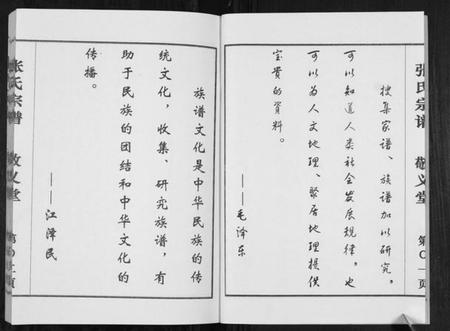 张氏宗谱 敬义堂 第〇一页
搜集家谱、族谱加以研究，
可以知道人类社会发展规律，也
可以为人文地理、聚居地理提供
宝贵的资料。
——毛泽东
族谱文化是中华民族的传
统文化，收集、研究族谱，有
助于民族的团结和中华文化的
传播。
——江泽民
张氏宗谱 敬义堂 第〇二页